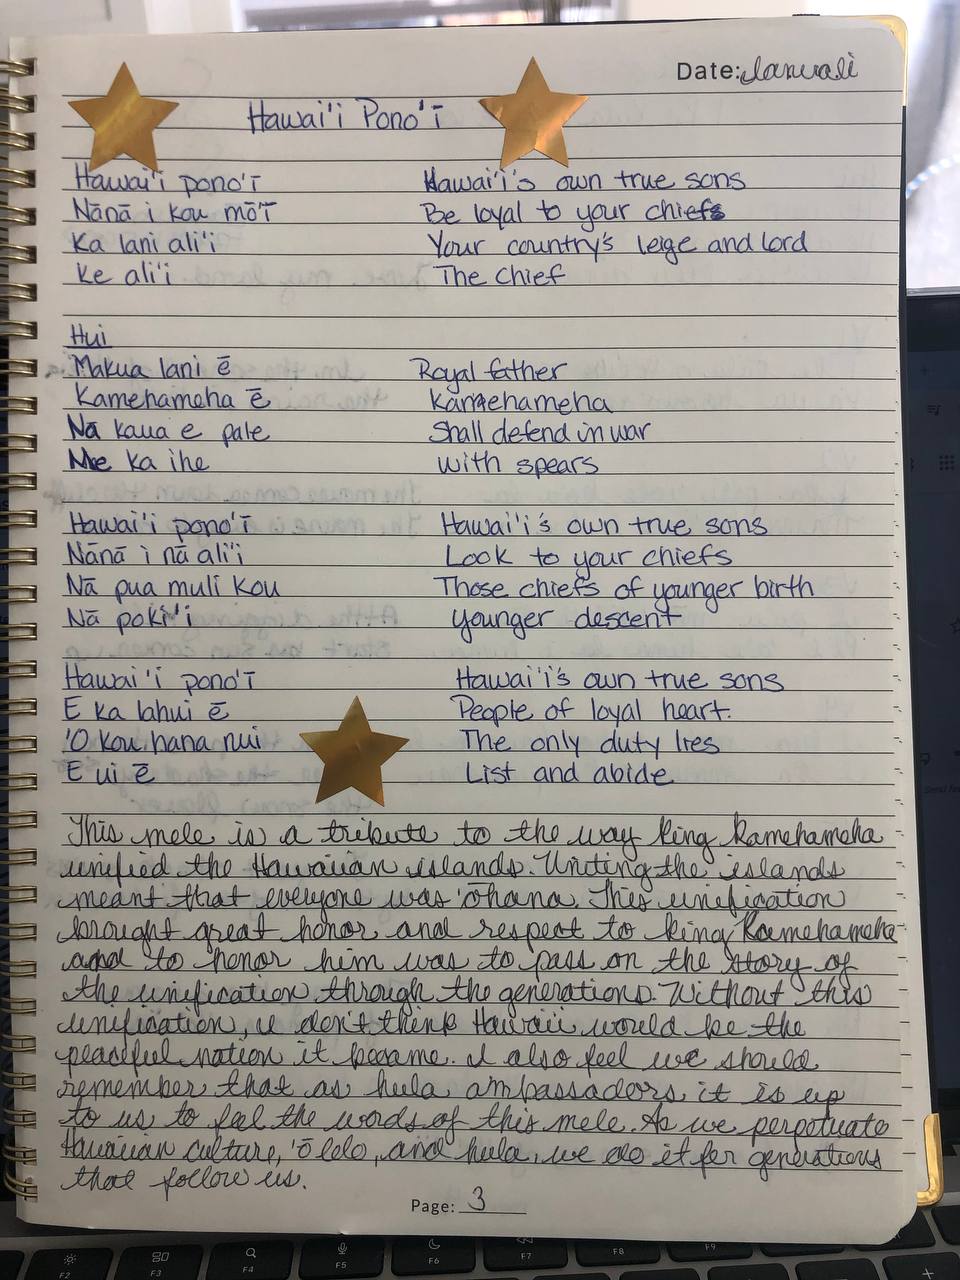 Date: Ianuali
Hawai'i Pono'ī
Hawai'i pono'ī Hawai'i's own true sons
Nānā i kou mō'ī Be loyal to your chiefs
Ka lani ali'i Your country's leige and lord
Ke ali'i The Chief
Hui
Makua lani ē Royal father
Kamehameha ē Kamehameha
Nā kaua e pale Shall defend in war
Me ka ihe With spears
Hawai'i pono'ī Hawai'i's own true sons
Nānā i nā ali'i Look to your chiefs
Nā pua muli kou Those chiefs of younger birth
Nā poki'i Younger descent
Hawai'i pono'ī Hawai'i's own true sons
E ka lahui ē People of loyal heart.
'O kou hana nui The only duty lies
E ui ē List and abide
This mele is a tribute to the way King Kamehameha
unified the Hawaiian islands. Uniting the islands
meant that everyone was 'ōhana. This unification
brought great honor and respect to King Kamehameha
and to honor him was to pass on the story of
the unification through the generations. Without this
unification, I don't think Hawaii would be the
peaceful nation it became. I also feel we should
remember that as hula ambassadors it is up
to us to feel the words of this mele. As we perpetuate
Hawaiian culture, 'ōlelo, and hula, we do it for generations
that follow us.
Page: 3
F2 F3 F4 F5 F6 F7 F8 F9